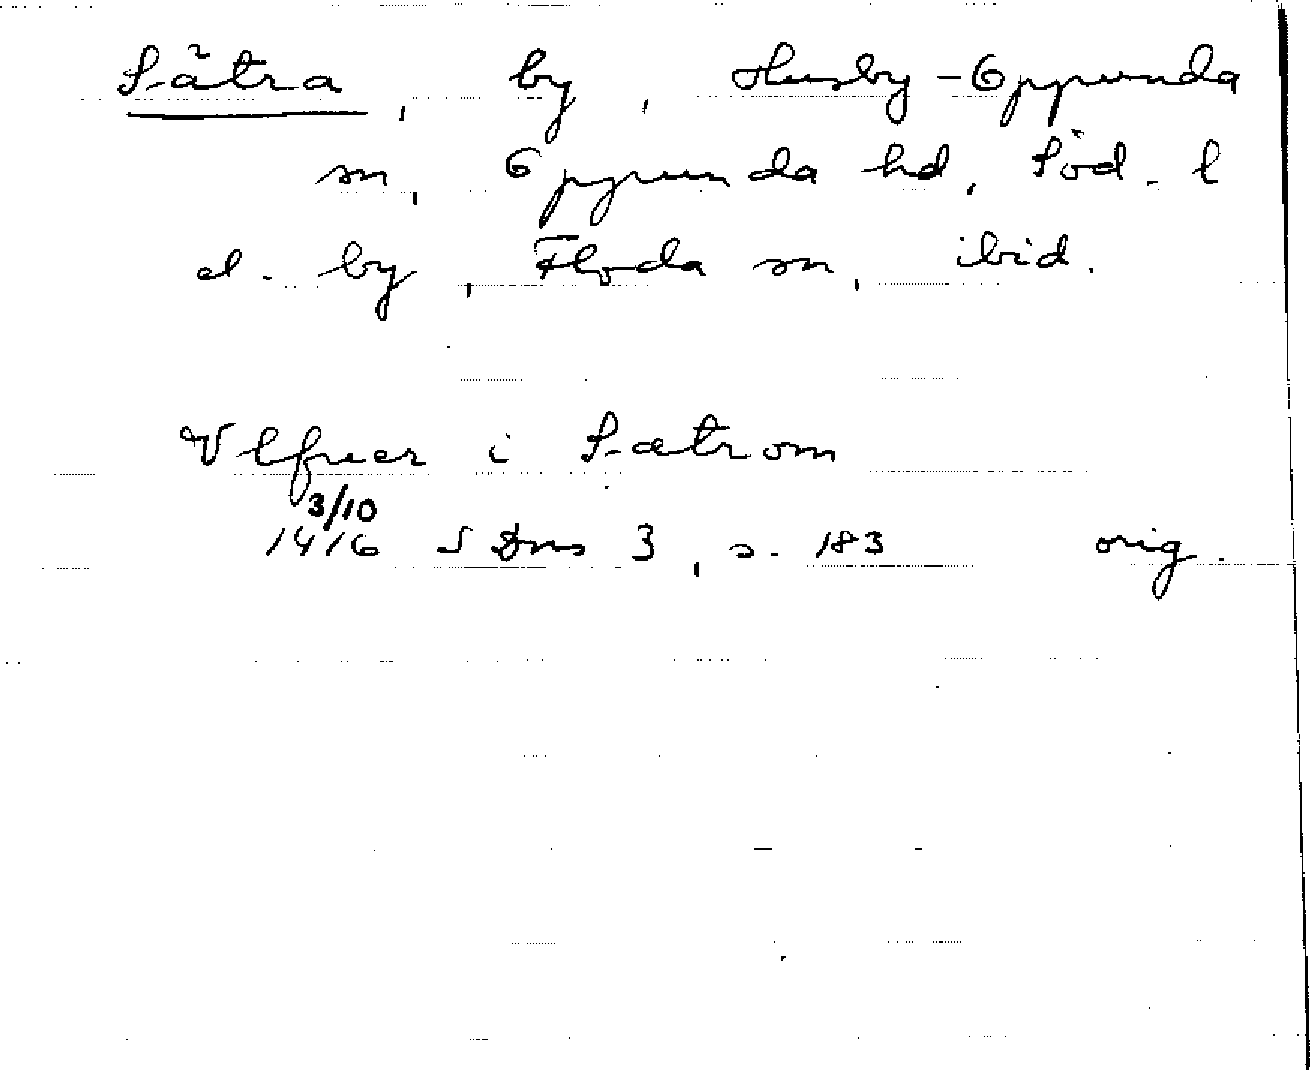 Sätra, by, Husby-Oppunda
sn, Oppunda hd, Söd. l
el. by, Floda sn, ibid.
Vlfuer i Sætrom
3/10
1416 SDns 3, s. 183 orig.